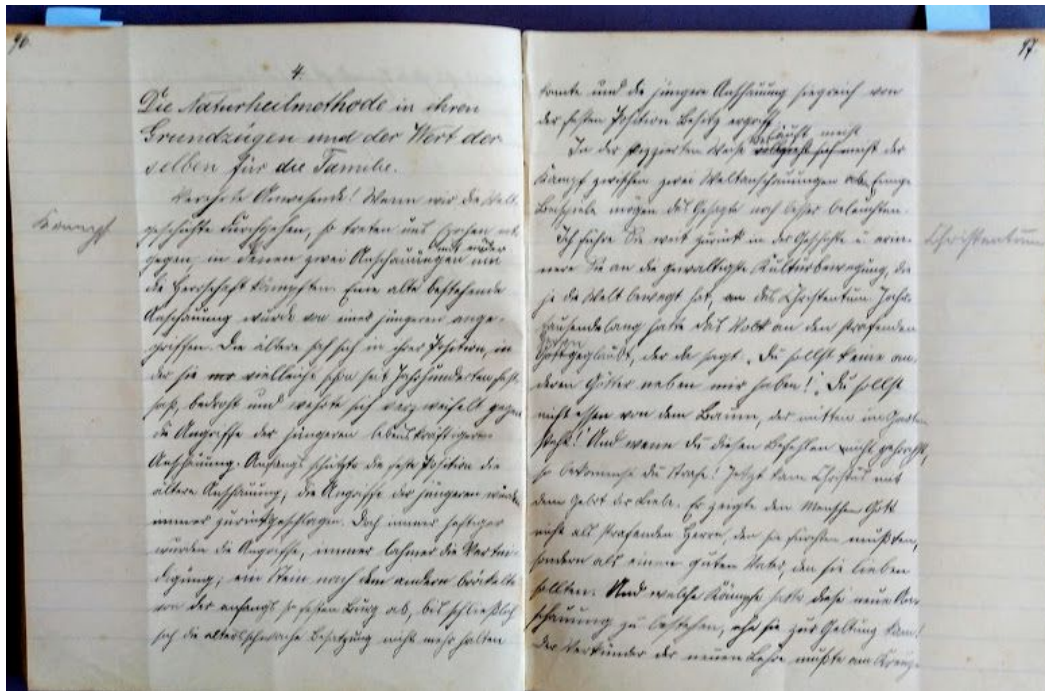 96.
4.
Die Naturheilmethode in ihren
Grundzügen und der Wert der
selben für die Familie.
Verehrte Anwesende! Wenn wir die Welt-
geschichte durchgehen, so treten uns Epochen ent-
gegen, in denen zwei Anschauungen mit einander um
die Herrschaft kämpften. Eine alte bestehende
Anschauung wurde von einer jüngeren ange-
griffen. Die ältere sah sich in ihrer Position, in
der sie vielleicht schon seit Jahrhunderten fest
saß, bedroht und wehrte sich verzweifelt gegen
die Angriffe der jüngeren lebenskräftigeren
Anschauung. Anfangs schützte die feste Position die
ältere Anschauung; die Angriffe der jüngeren wurden
immer zurückgeschlagen. Doch immer heftiger
wurden die Angriffe, immer lahmer die Vertei-
digung; ein Stein nach dem andern bröckelte
von der anfangs so festen Burg ab, bis schließlich
sich die altersschwache Besatzung nicht mehr halten
Kampf
97.
konnte und die jüngere Anschauung siegreich von
der festen Position Besitz ergriff.
In der skizzierten Weise meist der
Kampf zwischen zwei Weltanschauungen ab. Einige
Beispiele mögen das Gesagte noch besser beleuchten.
Ich führe Sie weit zurück in der Geschichte u. erin-
nere Sie an die gewaltigste Kulturbewegung, die
je die Welt bewegt hat, an das Christentum. Jahr-
tausendelang hatte das Volk an den strafenden
Gott geglaubt, der da sagt: "Du sollst keine an-
deren Götter neben mir haben! Du sollst
nicht essen von dem Baum, der mitten im Garten
steht! Und wenn du diesen Befehlen nicht gehorchst,
so bekommst du Strafe! Jetzt kam Christus mit
dem Gebot der Liebe. Er zeigte den Menschen Gott
nicht als strafenden Herrn, den sie fürchten mußten,
sondern als einen guten Vater, den sie lieben
sollten. Und welche Kämpfe hatte diese neue An-
schauung zu bestehen, ehe sie zur Geltung kam!
Der Verkünder der neuen Lehre mußte am Kreuze
Christentum